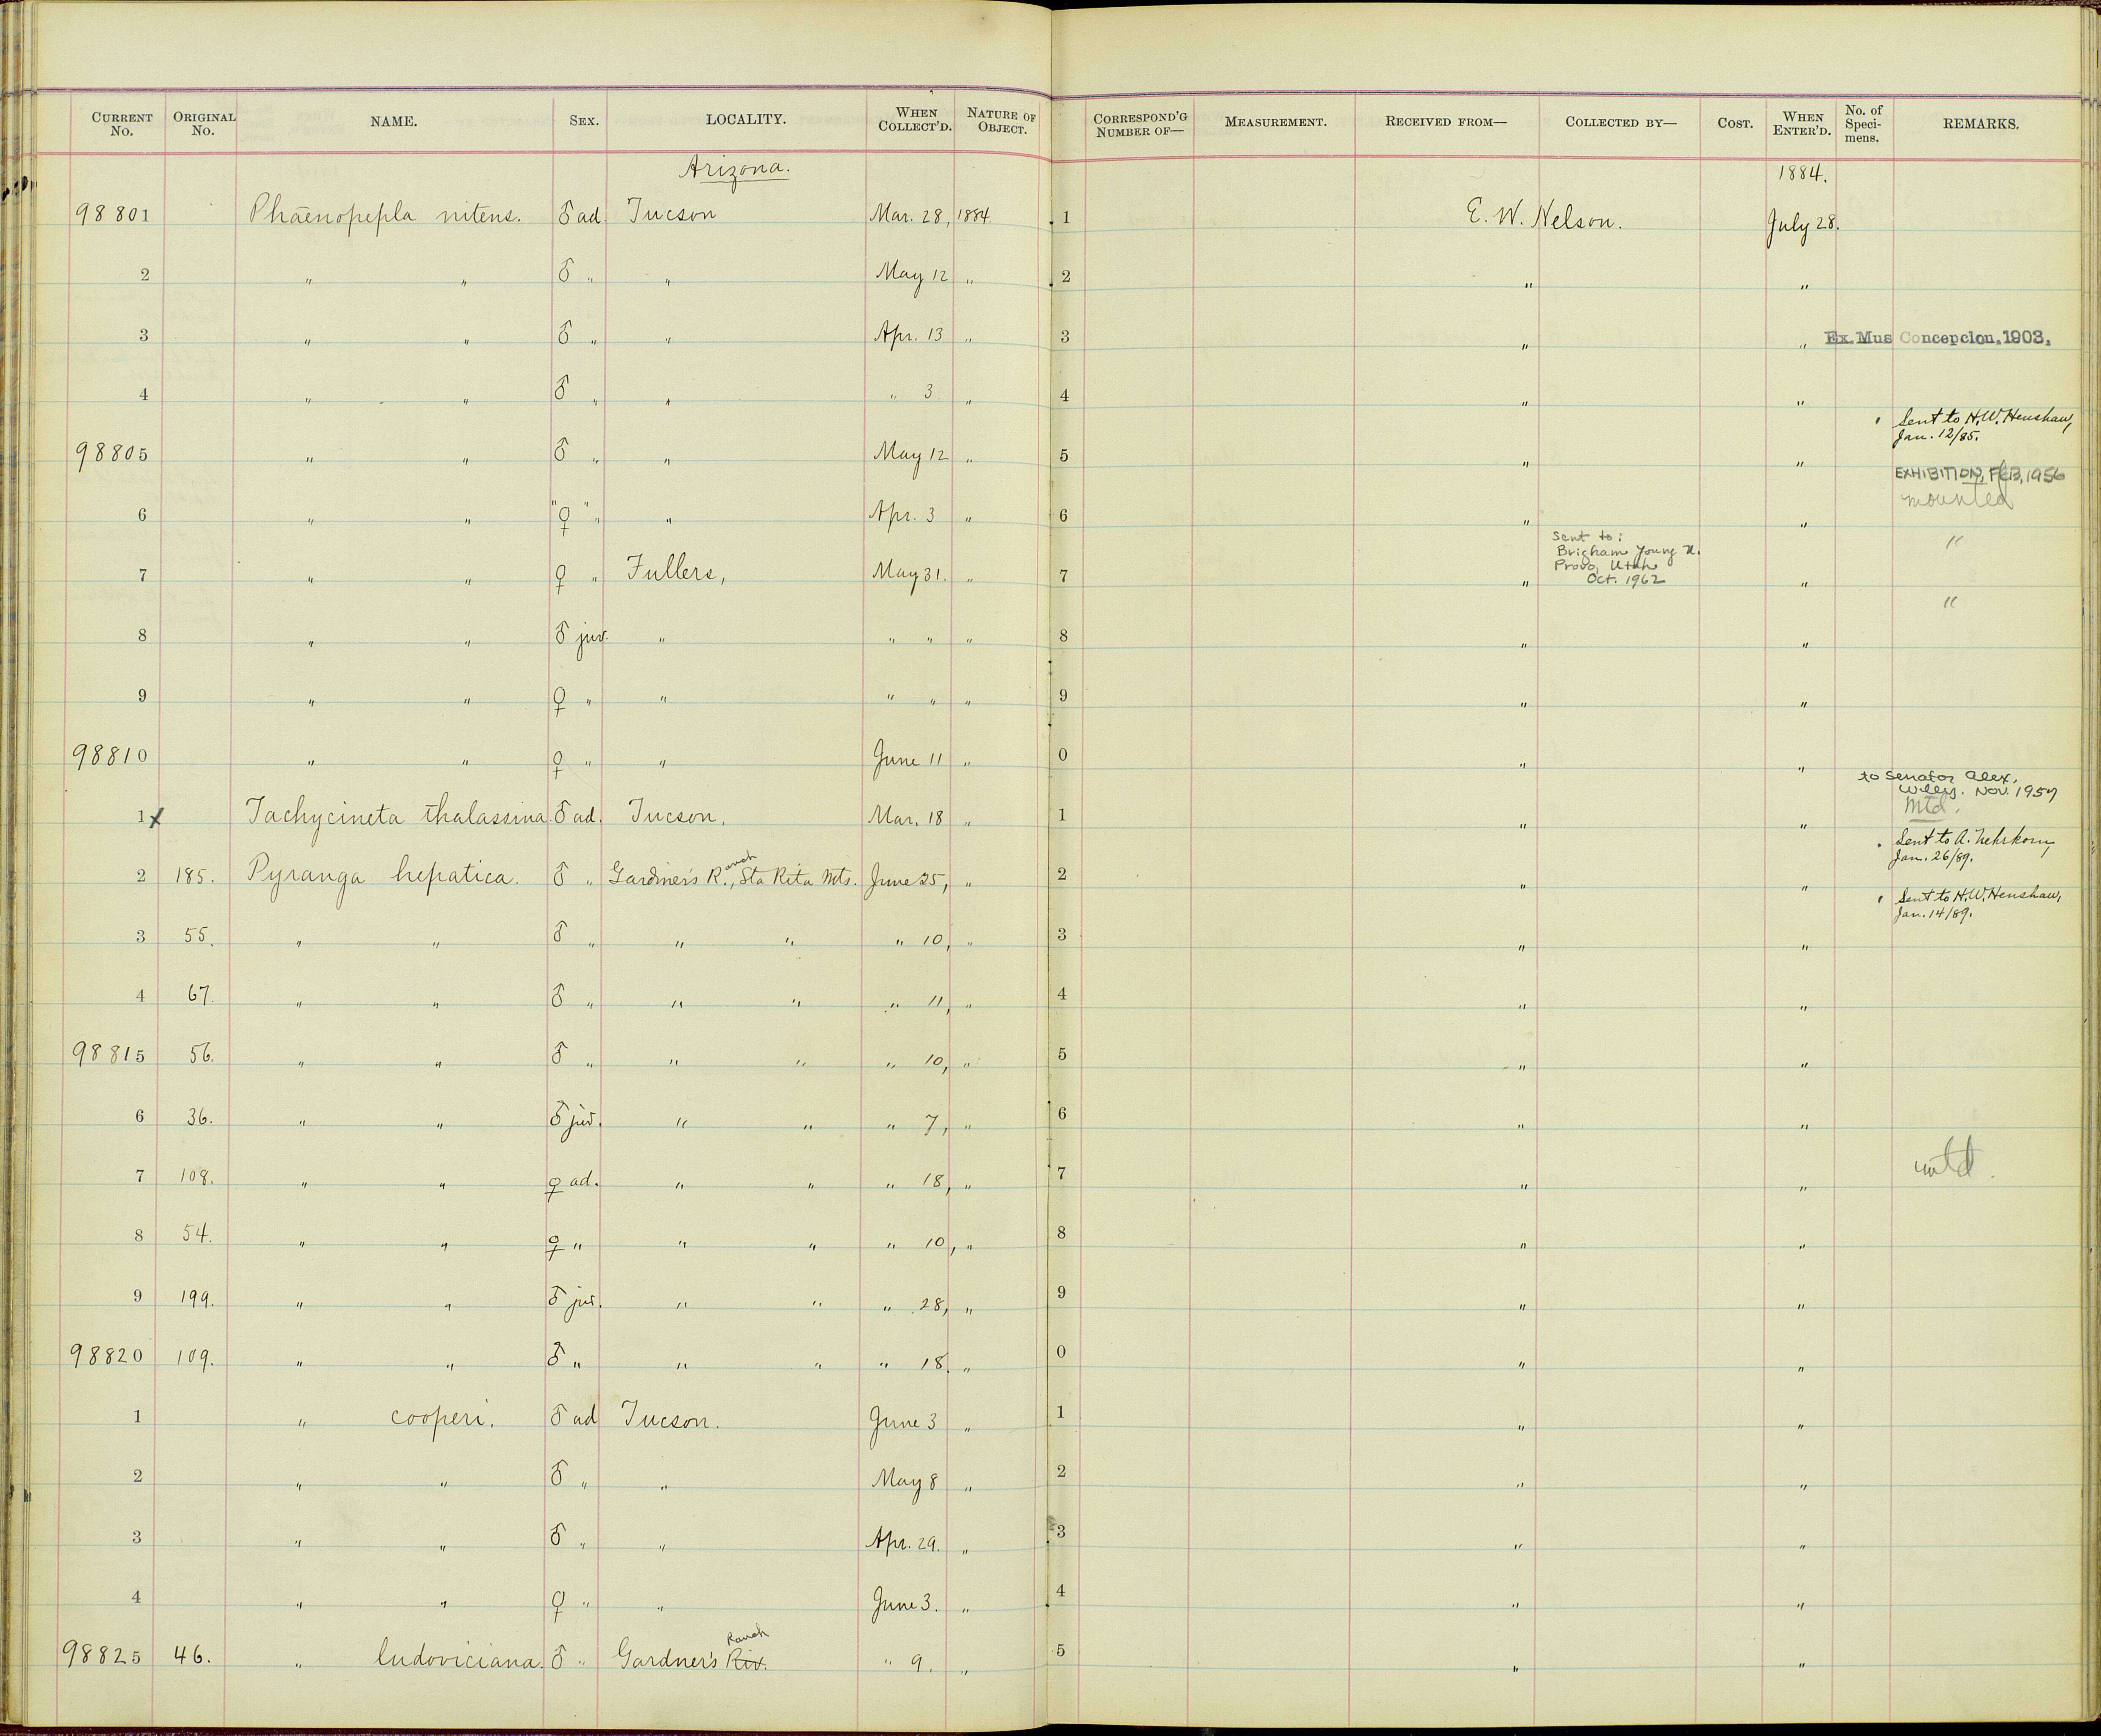 CURRENT No. ORIGINAL No. NAME. SEX. LOCALITY. WHEN COLLECT'D. NATURE OF OBJECT. CORRESPOND'G NUMBER OF— MEASUREMENT. RECEIVED FROM— COLLECTED BY— COST. WHEN ENTER'D. No. of Speci-mens. REMARKS.
Arizona. 1884.
98801 Phaenopepla nitens. ♂ ad. Tucson Mar. 28, 1884 1 E. W. Nelson. July 28.
2 " " ♂ " " May 12 " 2 " "
3 " " ♂ " " Apr. 13 " 3 " " Ex. Mus Concepcion. 1903.
4 " " ♂ " " " 3 " 4 " "
Sent to H.W. Henshaw,
Jan. 12/85.
98805 " " ♂ " " May 12 " 5 " "
EXHIBITION, FEB, 1956
mounted
6 " " "♀" " " Apr. 3 " 6 " "
Sent to:
Brigham Young U.
Provo, Utah
Oct. 1962
"
7 " " ♀ " Fullers, May 31. " 7 " "
"
8 " " ♂ juv. " " " " 8 " "
9 " " ♀ " " " " " 9 " "
98810 " " ♀ " " June 11 " 0 " "
to Senator Alex.
Wiley. Nov. 1957
Mtd.
1 x Tachycineta thalassina. ♂ ad. Tucson. Mar. 18 " 1 " "
Sent to A. Nehrkorn,
Jan. 26/89.
2 185. Pyranga hepatica. ♂ " Gardner's R.anch, Sta Rita Mts. June 25, " 2 " "
Sent to H.W. Henshaw,
Jan. 14/89.
3 55. " " ♂ " " " " 10, " 3 " "
4 67. " " ♂ " " " " 11, " 4 " "
98815 56. " " ♂ " " " " 10, " 5 " "
6 36. " " ♂ juv. " " " 7, " 6 " "
7 108. " " ♀ ad. " " " 18, " 7 " " mtd.
8 54. " " ♀ " " " " 10, " 8 " "
9 199. " " ♂ juv. " " " 28, " 9 " "
98820 109. " " ♂ " " " " 18. " 0 " "
1 " cooperi. ♂ ad Tucson. June 3 " 1 " "
2 " " ♂ " " May 8 " 2 " "
3 " " ♂ " " Apr. 29. " 3 " "
4 " " ♀ " " June 3. " 4 " "
98825 46. " ludoviciana. ♂ " Gardner's Riv. Ranch " 9. " 5 " "